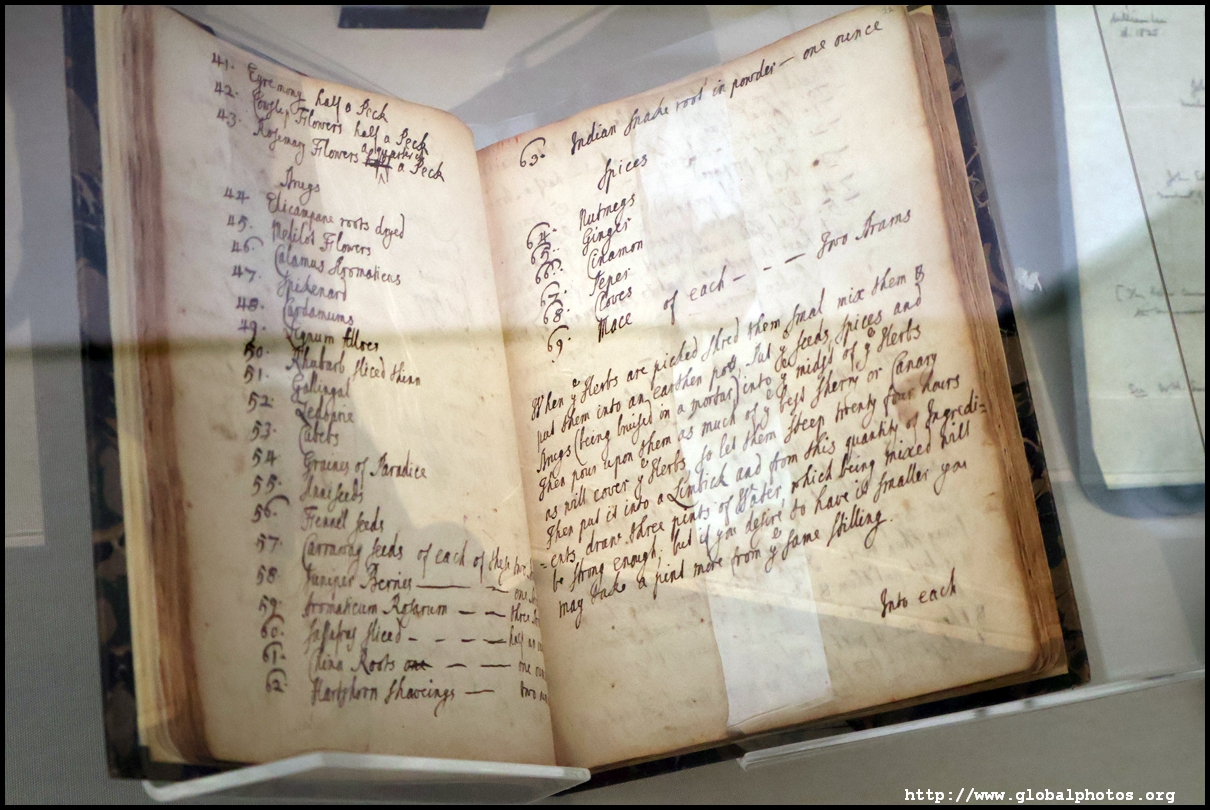 41. Egremony half a Peck
42. Cowslip Flowers half a Peck
43. Rosemary Flowers a quarter of a Peck
Drugs
44. Elicampane roots dryed
45. Melilot Flowers
46. Calamus Aromaticus
47. Spikenard
48. Cardamums
49. Lignum Alloes
50. Rhubarb sliced thinn
51. Gallingal
52. Zedoarie
53. Cubebs
54. Graines of Paradice
55. Anniseeds
56. Fennell seeds
57. Carraway seeds of each of these two
58. Juniper Berries
59. Aromaticum Rosarum — — three
60. Sassafras sliced - - - - - half an
61. China Roots one — — — one oun
62. Hartshorn Shaveings — two
63. Indian Snake root in powder — one ounce
Spices
64. Nutmegs
65. Ginger
66. Cinamon
67. Peper
68. Coves
69. Mace of each - - - Two Drams
When ye Herbs are picked shred them smal mix them &
put them into an earthen pott, Put ye seeds spices and
Drugs (being bruised in a mortar) into ye midst of ye Herbs
Then pour upon them as much of ye best Sherry or Canary
as will cover ye Herbs so let them steep twenty four hours
Then put it into a Limbick and from this quantity of Ingredi=
=ents, draw three pints of Water, which being mixed will
be strong enough; but if you desire to have it smaller you
may take a pint more from ye same stilling.
Into each
http://www.globalphotos.org